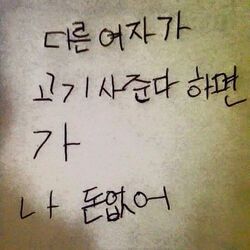 다른 여자가
고기사준다 하면
가
나 돈없어